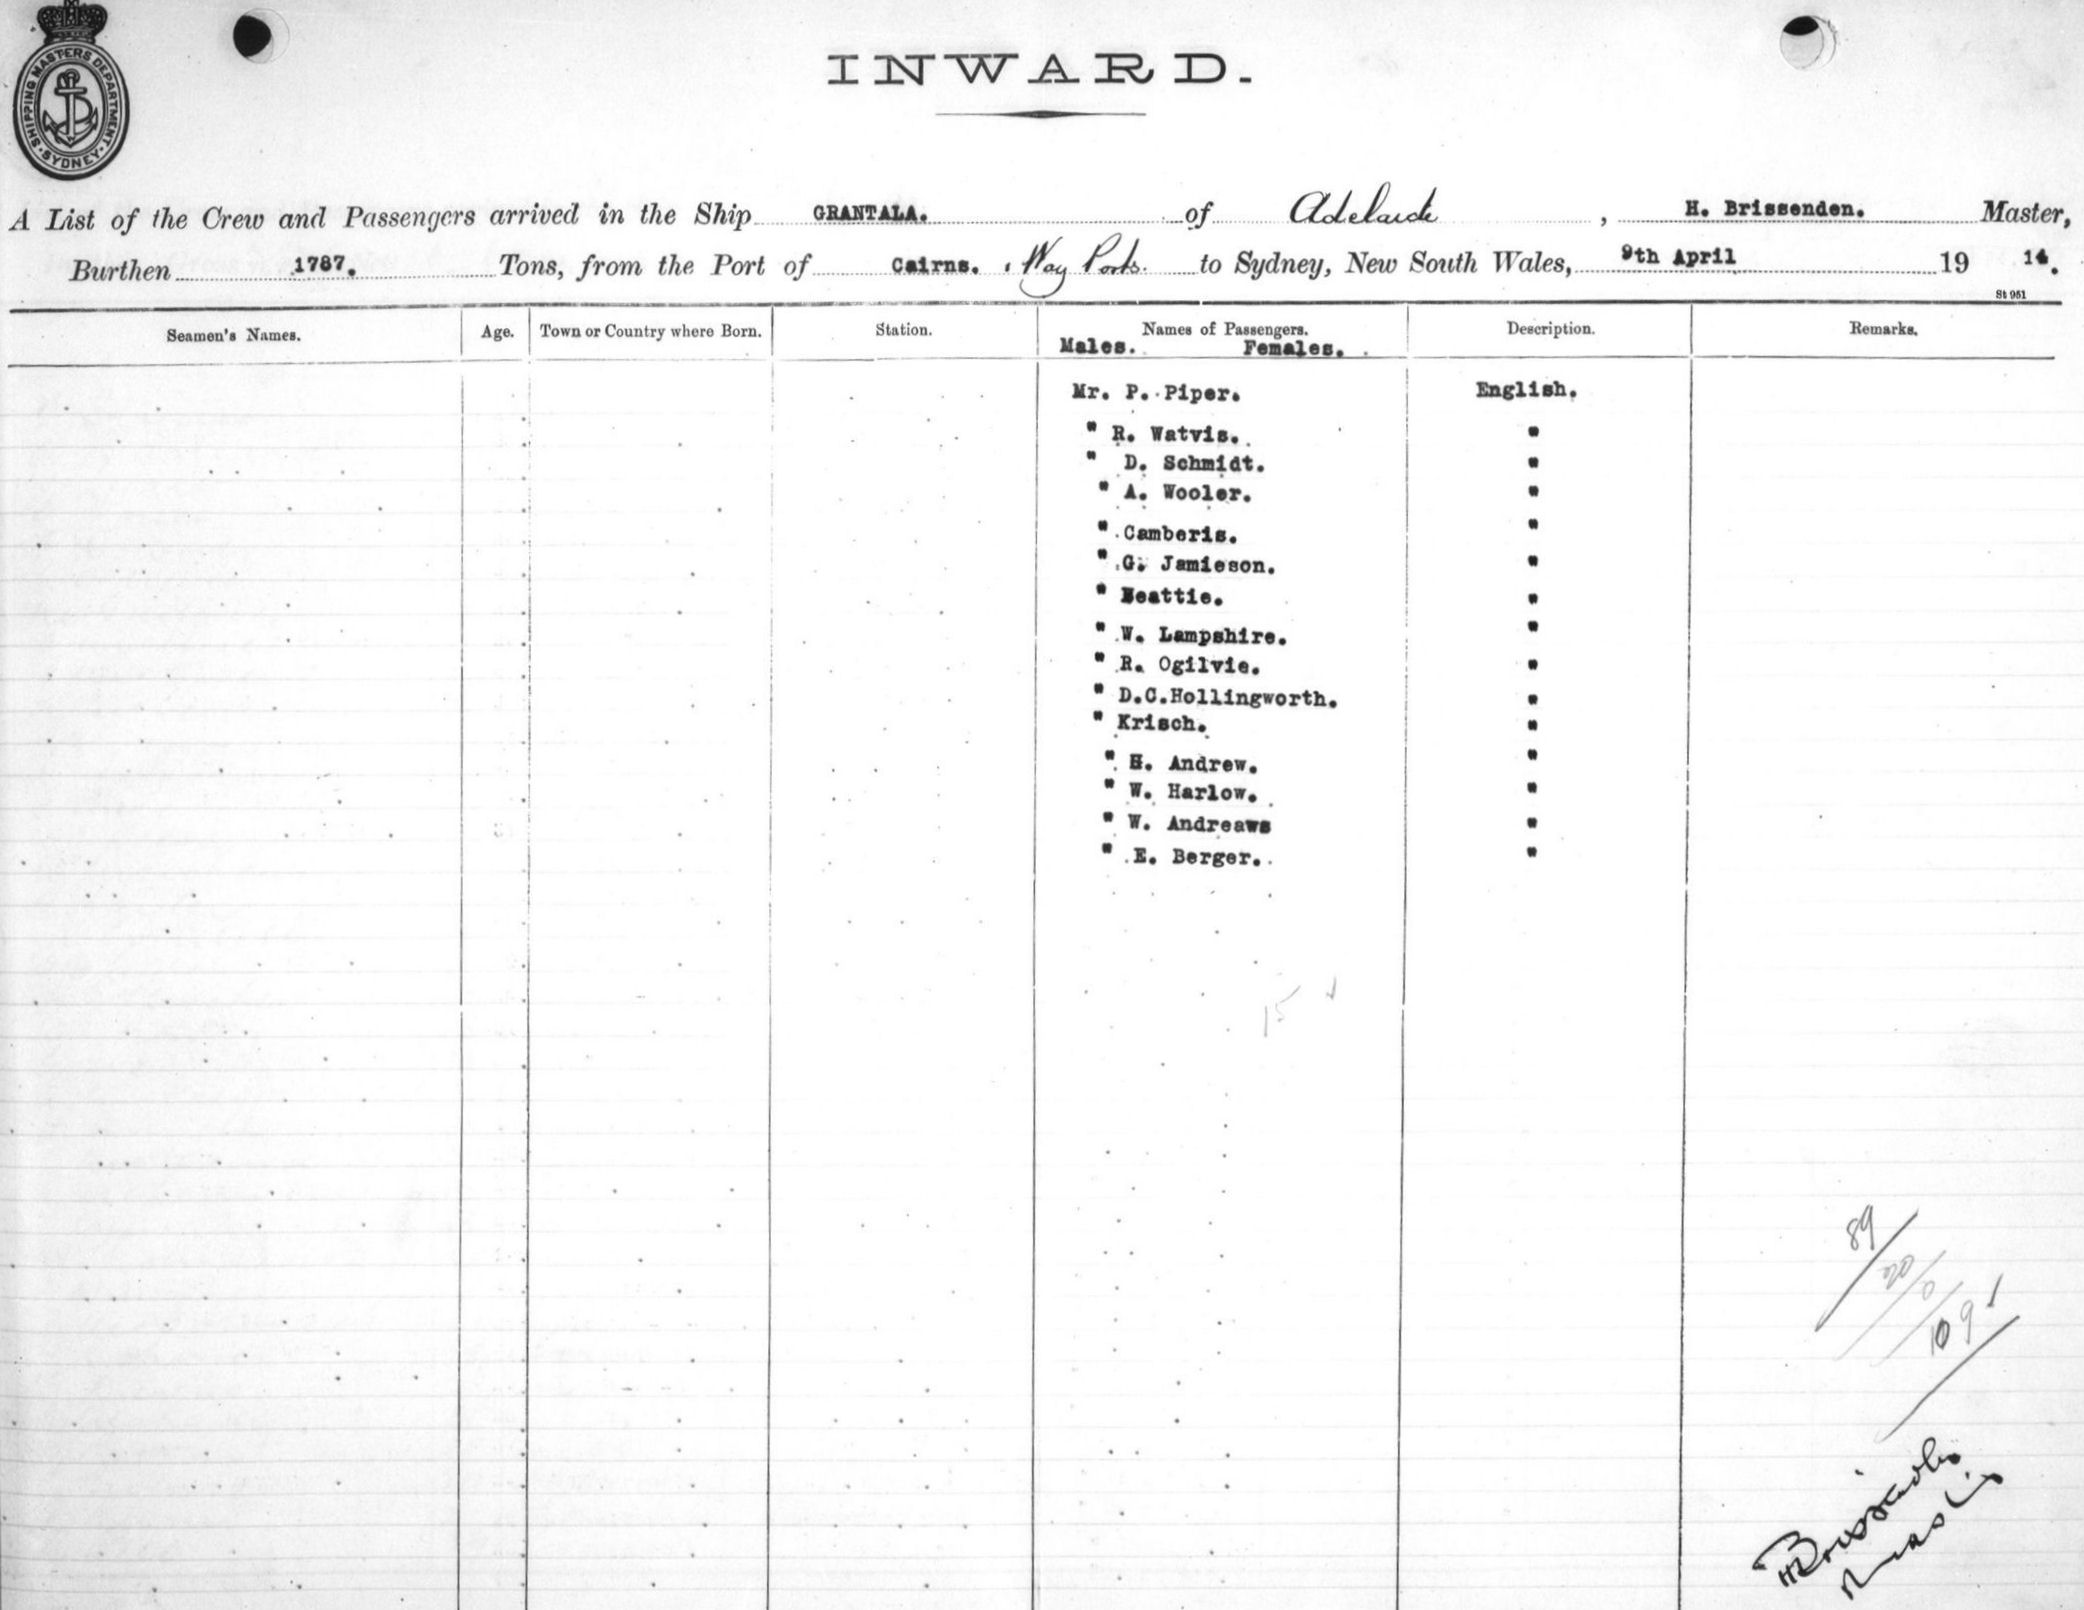 SHIPPING MASTERS DEPARTMENT
SYDNEY
INWARD.
A List of the Crew and Passengers arrived in the Ship GRANTALA. of Adelaide, H. Brissenden. Master,
Burthen 1787. Tons, from the Port of Cairns. Way Ports. to Sydney, New South Wales, 9th April 1914.
St 951
Seamen's Names. Age. Town or Country where Born. Station. Names of Passengers. Description. Remarks.
Males. Females.
Mr. P. Piper. English.
" R. Watvis. "
" D. Schmidt. "
" A. Wooler. "
" Camberis. "
" G. Jamieson. "
" Beattie. "
" W. Lampshire. "
" R. Ogilvie. "
" D.C.Hollingworth. "
" Krisch. "
" H. Andrew. "
" W. Harlow. "
" W. Andreaws "
" E. Berger. "
15
89
109
HBrissenden
Master